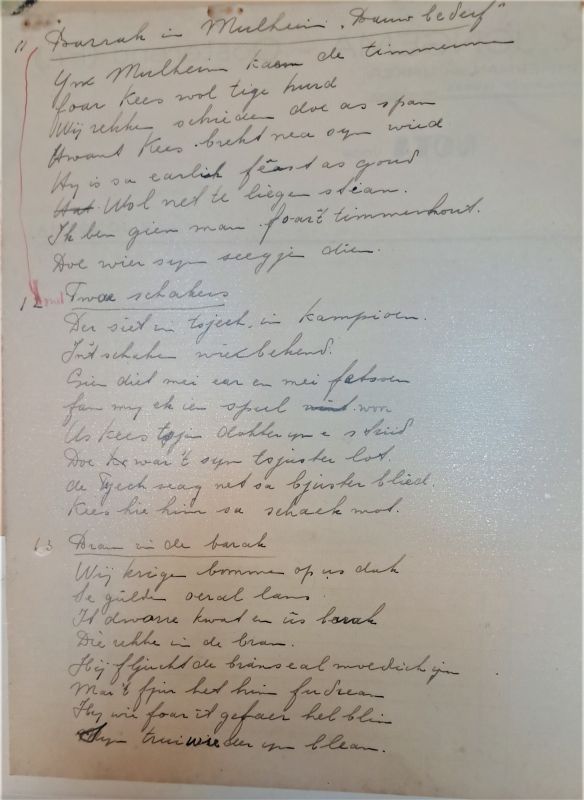 11 Barrak in Mulheim "Douw bederf"
Yn Mulheim kaem de timmerman
foar Kees wol tige hurd
Wij rekke schrieden doe as span
want Kees brekt nea syn wird
Hy is sa earlik fêast as goud
Wol net te liegen stean.
Ik ben gien man foar't timmerhout.
Doe wier syn seegje dien.
12 Twa schakers
Der siet in tsjech, in kampioen.
In't schaken wiid bekend.
Gien diet mei ear en mei fatsoen
fan my ek ien spul won
Us Kees tsjin dokter yn e striid
Doe war't syn tsjuster lot.
de Tsjech seag net sa bjuster bliid.
Kees hie him sa schaek mat.
13 Bran in de barak
Wij krigen bommen op us dak
Se gûlden oeral lans
It dwarre kwat en ús barak
Die rekke in de bran.
Hij fljucht de brânseal moedich yn
Mar't fjûr het him
Hy wie foar it gefaer hel blin
Syn trui wie der yn blean.